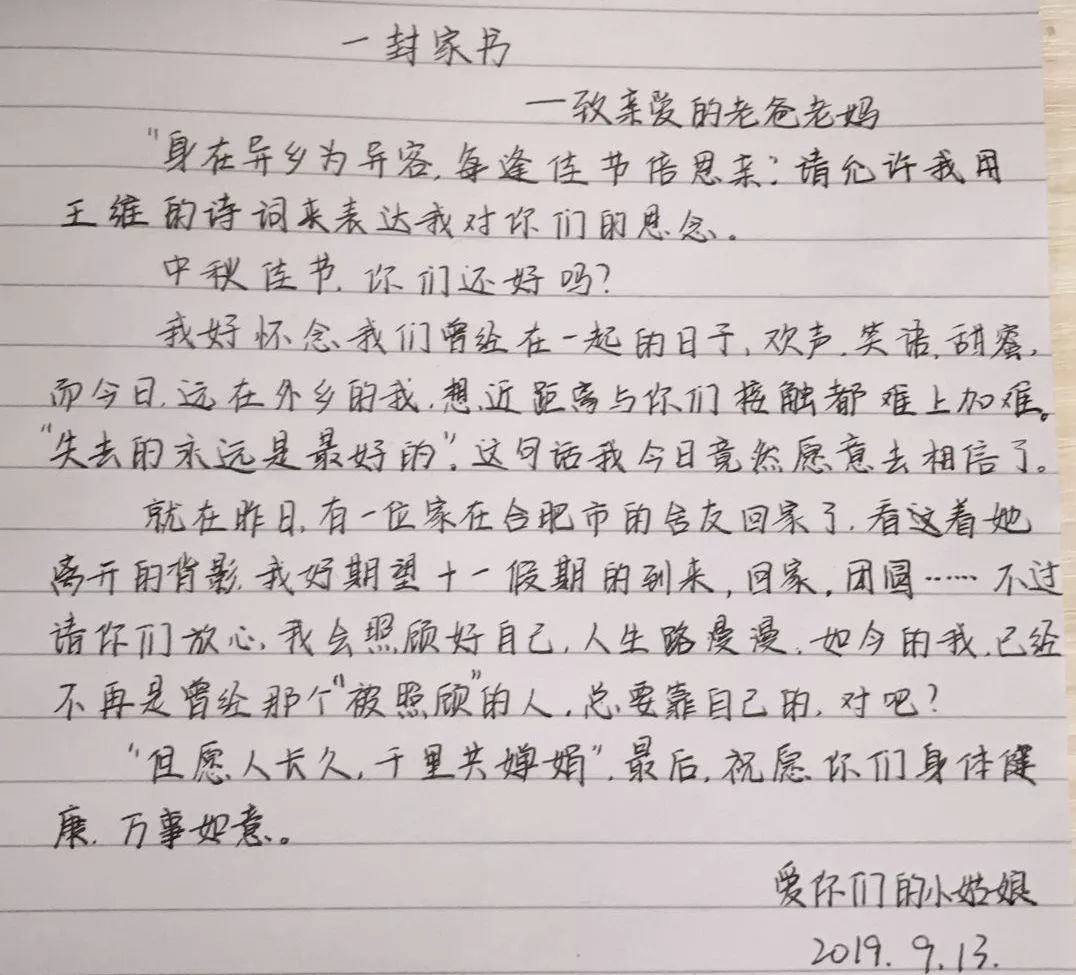 一封家书
—致亲爱的老爸老妈
“身在异乡为异客,每逢佳节倍思亲”请允许我用
王维的诗词来表达我对你们的思念。
中秋佳节,你们还好吗?
我好怀念我们曾经在一起的日子,欢声,笑语,甜蜜,
而今日,远在外乡的我,想近距离与你们接触都难上加难。
“失去的永远是最好的”,这句话我今日竟然愿意去相信了。
就在昨日,有一位家在合肥市的舍友回家了,看这着她
离开的背影,我好期望十一假期的到来,回家,团圆……不过
请你们放心,我会照顾好自己,人生路漫漫,如今的我,已经
不再是曾经那个“被照顾”的人,总要靠自己的,对吧?
“但愿人长久,千里共婵娟”,最后,祝愿你们身体健
康,万事如意。
爱你们的小姑娘
2019.9.13.